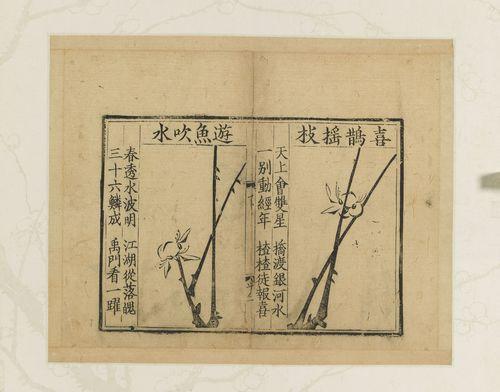 喜鵲搖枝
天上會雙星 橋渡銀河水
一別動經年 楂楂徒報喜
下
遊魚吹水
春透水波明 江湖從落魄
三十六鱗成 禹門看一躍